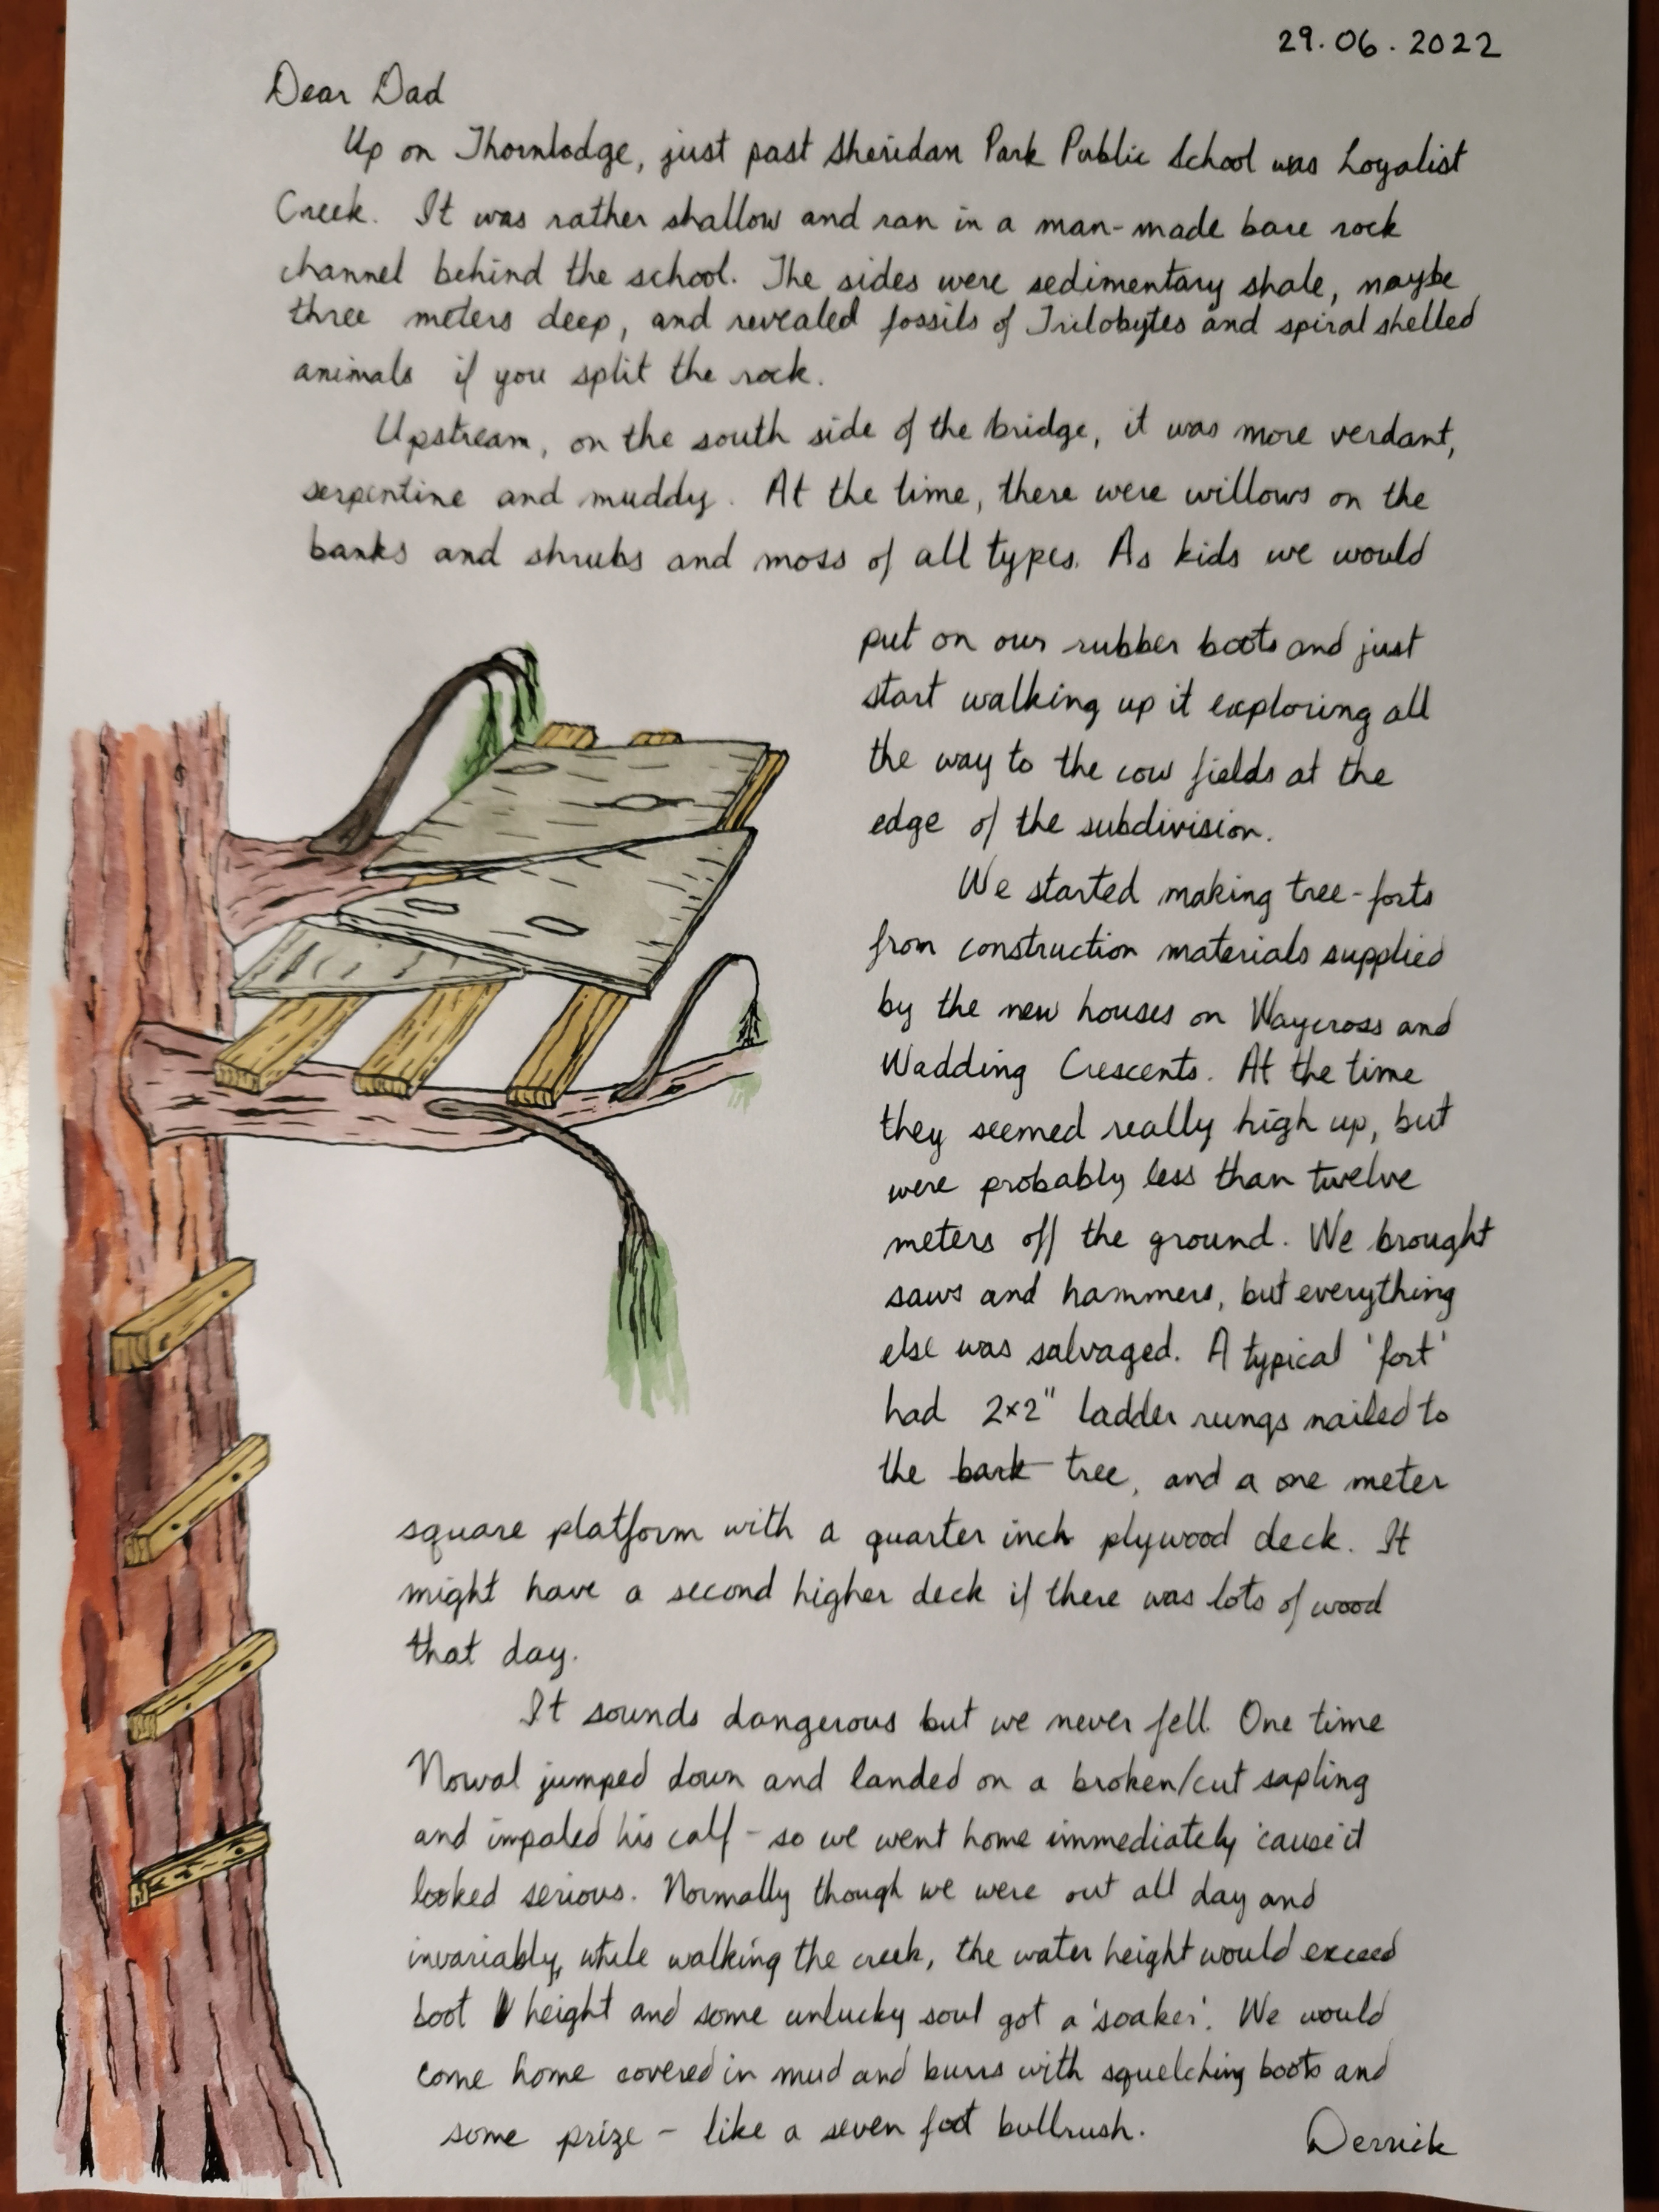 29.06.2022
Dear Dad
Up on Thornlodge, just past Sheridan Park Public School was Loyalist
Creek. It was rather shallow and ran in a man-made bare rock
channel behind the school. The sides were sedimentary shale, maybe
three meters deep, and revealed fossils of Trilobytes and spiral shelled
animals if you split the rock.
Upstream, on the south side of the bridge, it was more verdant,
serpentine and muddy. At the time, there were willows on the
banks and shrubs and moss of all types. As kids we would
put on our rubber boots and just
start walking up it exploring all
the way to the cow fields at the
edge of the subdivision.
We started making tree-forts
from construction materials supplied
by the new houses on Waycross and
Wadding Crescents. At the time
they seemed really high up, but
were probably less than twelve
meters off the ground. We brought
saws and hammers, but everything
else was salvaged. A typical 'fort'
had 2×2" ladder rungs nailed to
the bark tree, and a one meter
square platform with a quarter inch plywood deck. It
might have a second higher deck if there was lots of wood
that day.
It sounds dangerous but we never fell. One time
Norval jumped down and landed on a broken/cut sapling
and impaled his calf - so we went home immediately 'cause it
looked serious. Normally though we were out all day and
invariably, while walking the creek, the water height would exceed
boot height and some unlucky soul got a 'soaker'. We would
come home covered in mud and burrs with squelching boots and
some prize - like a seven foot bullrush.
Derrick